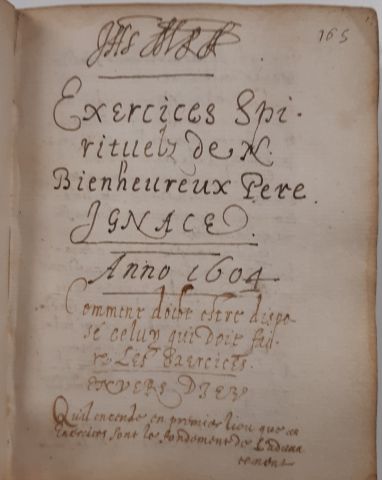 165
JHS MRA
Exercices Spi-
rituelz de N.
Bienheureux Pere
IGNACE.
Anno 1604
Comment doibt estre dispo-
sé celuy qui doit fai-
re Les Exercices.
ENVERS DIEU
Qu'il entende en premier lieu que ces
Exercices sont le fondement de